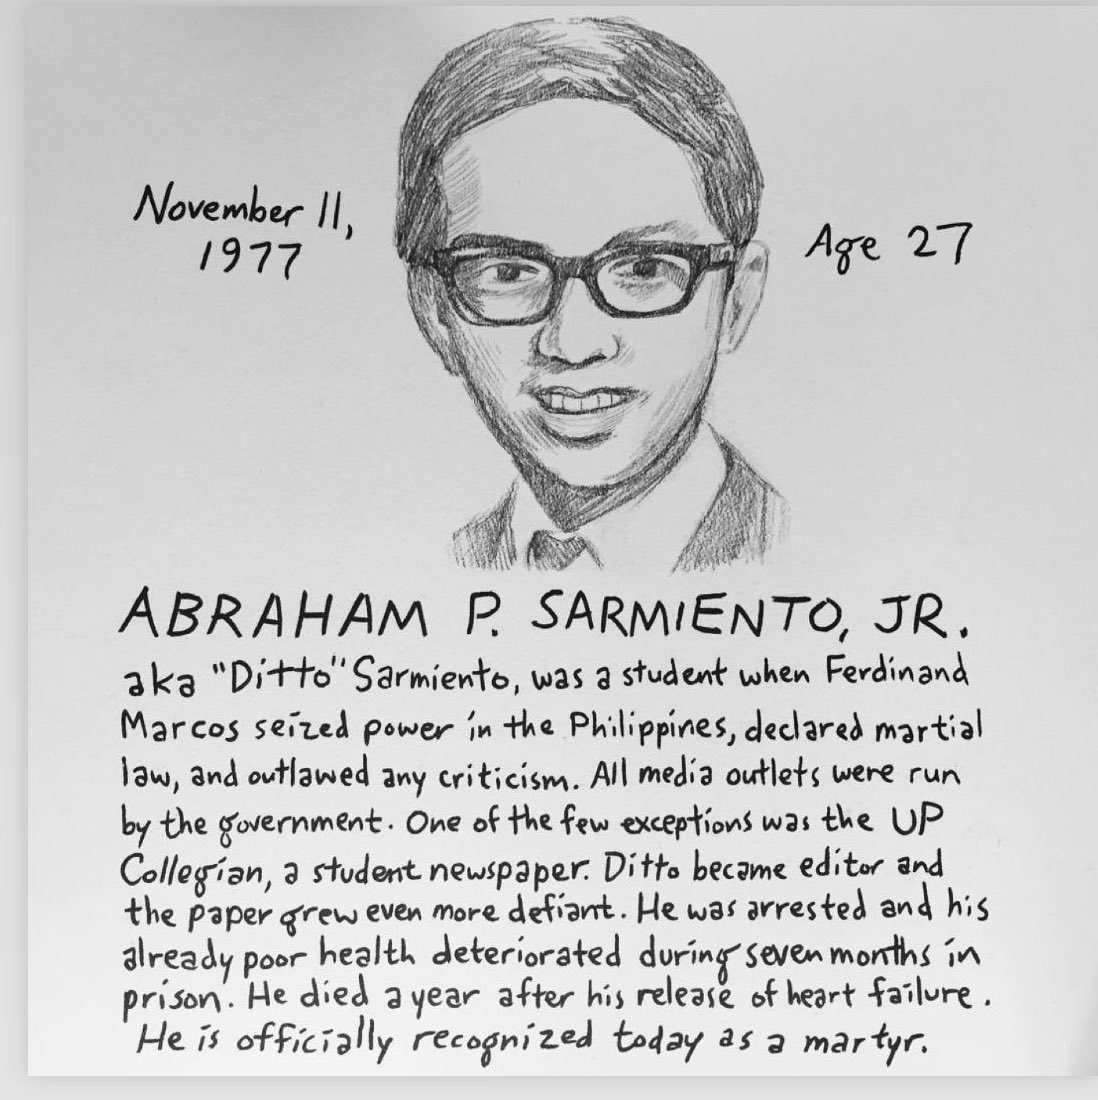 November 11,
1977
Age 27
ABRAHAM P. SARMIENTO, JR.
aka "Ditto" Sarmiento, was a student when Ferdinand
Marcos seized power in the Philippines, declared martial
law, and outlawed any criticism. All media outlets were run
by the government. One of the few exceptions was the UP
Collegian, a student newspaper. Ditto became editor and
the paper grew even more defiant. He was arrested and his
already poor health deteriorated during seven months in
prison. He died a year after his release of heart failure.
He is officially recognized today as a martyr.